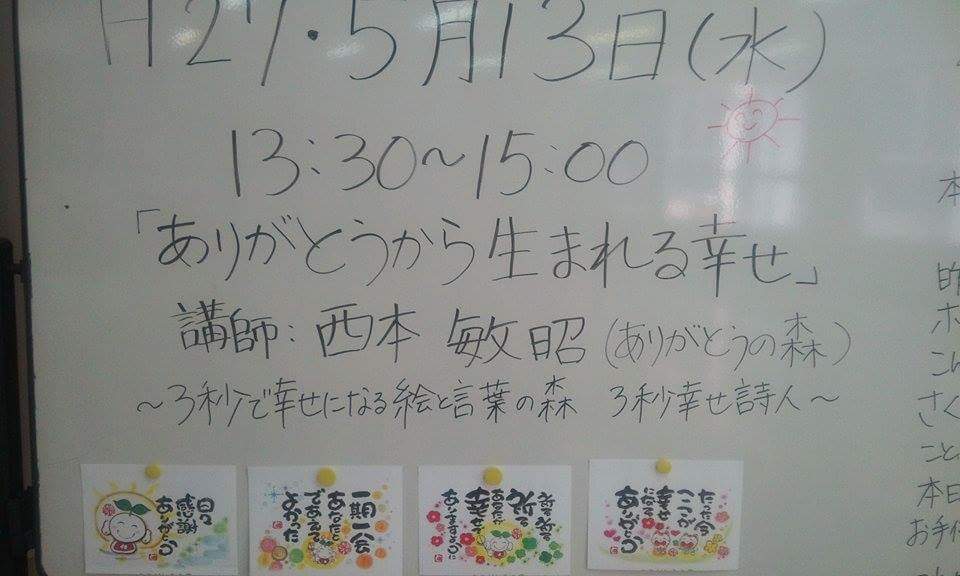 H27.5月13日(水)
13:30~15:00
「ありがとうから生まれる幸せ」
講師:西本 敏昭(ありがとうの森)
~3秒で幸せになる絵と言葉の森 3秒幸せ詩人~
日々
感謝
ありがとう
一期一会
あなたと
であえて
よかった
祈る
あなたが
幸せで
ありますように
たった今
ここが
幸せ
になる
ありがとう
本
昨
ホ
こん
さく
こと
本日
お手伝